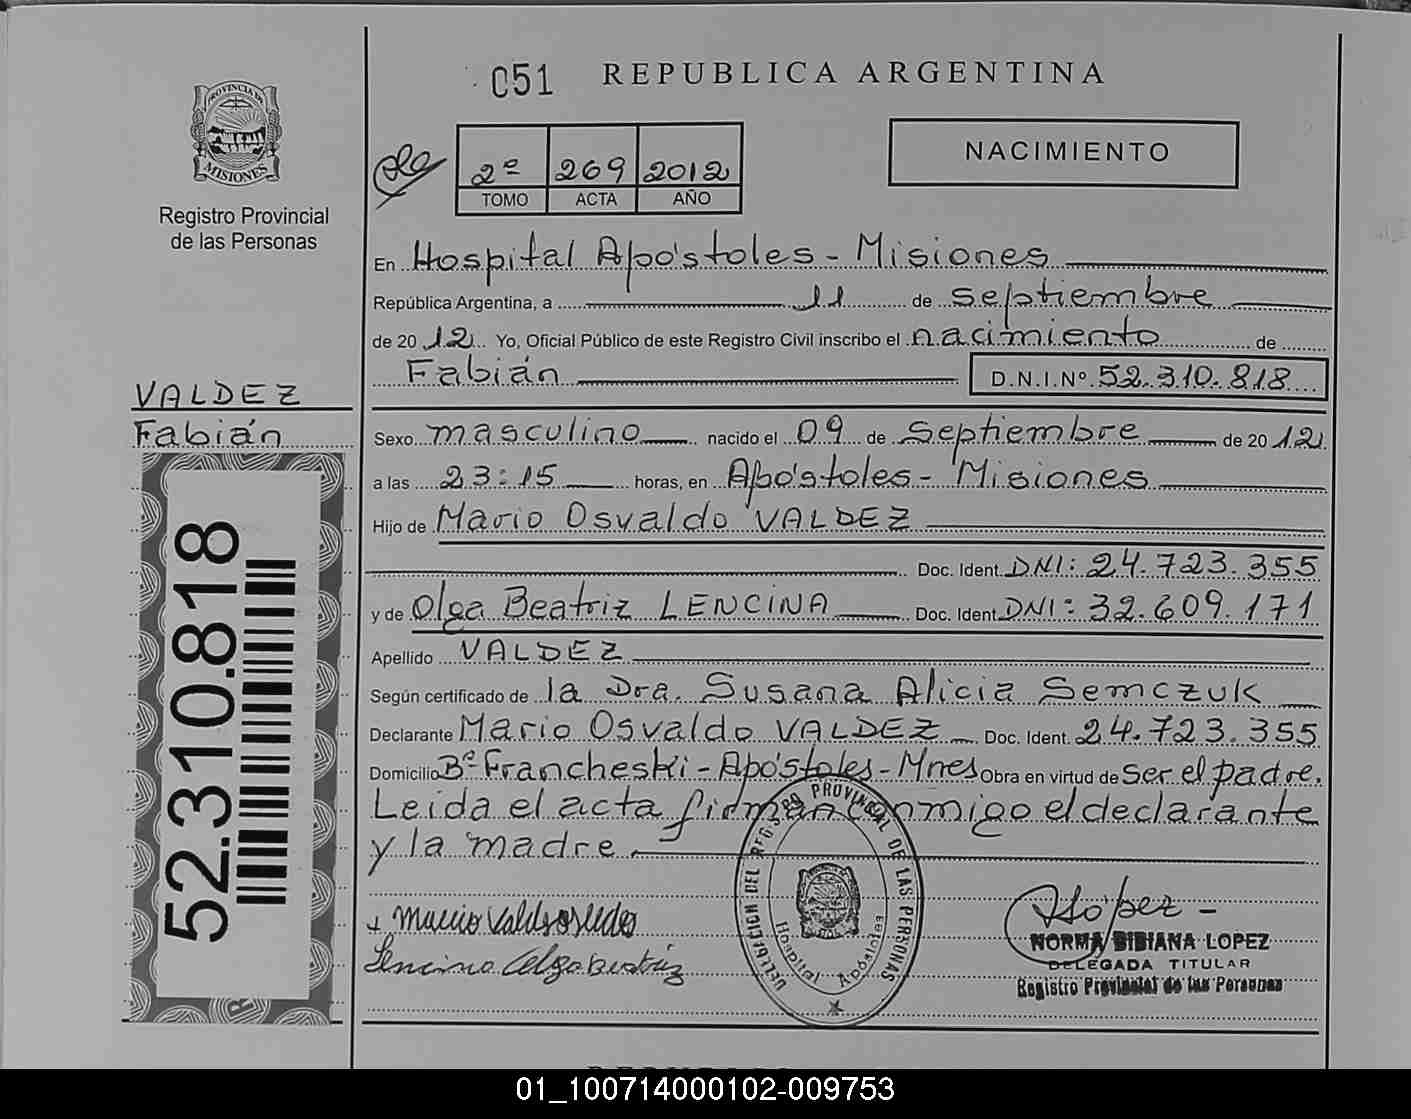 051 REPUBLICA ARGENTINA
PROVINCIA DE
MISIONES
Registro Provincial
de las Personas
2º 269 2012
TOMO ACTA AÑO
NACIMIENTO
En Hospital Apóstoles - Misiones
República Argentina, a 11 de septiembre
de 2012 Yo, Oficial Público de este Registro Civil inscribo el nacimiento de
Fabián D.N.I.Nº 52.310.818
VALDEZ
Fabián
52.310.818
Sexo masculino nacido el 09 de Septiembre de 2012
a las 23:15 horas, en Apóstoles - Misiones
Hijo de Mario Osvaldo VALDEZ
Doc. Ident. DNI: 24.723.355
y de Olga Beatriz LENCINA Doc. Ident. DNI: 32.609.171
Apellido VALDEZ
Según certificado de la Dra. Susana Alicia Semczuk
Declarante Mario Osvaldo VALDEZ Doc. Ident. 24.723.355
Domicilio Bº Francheski - Apóstoles - Mnes Obra en virtud de Ser el padre.
Leída el acta firman conmigo el declarante
y la madre.
DELEGACION DEL REGISTRO PROVINCIAL DE LAS PERSONAS
Hospital Apóstoles
Lencina Olga Beatriz
López
NORMA BIBIANA LOPEZ
DELEGADA TITULAR
Registro Provincial de las Personas
01_100714000102-009753